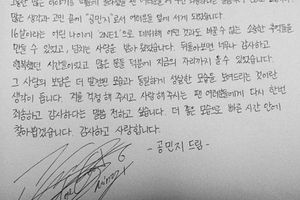 많은 생각과 고민 끝에 "공민지"로서 여러분들 앞에 서게 되었습니다.
16살이라는 어린 나이에 2NE1으로 데뷔해 어떤 것과도 바꿀 수 없는 소중한 추억들을
만들 수 있었고, 넘치는 사랑을 받아 왔습니다. 뒤돌아보면 너무나 감사하고
행복했던 시간들이었고 많은 분들 덕분에 지금의 자리까지 올 수 있었습니다.
그 사랑의 보답은 더 발전된 모습과 음악적인 성장한 모습을 보여드리는 것이란
생각이 듭니다. 저를 걱정해 주시고 사랑해 주시는 팬 여러분들에게 다시 한번
죄송하고 감사하다는 말씀 전하고 싶습니다. 더 좋은 모습으로 빠른 시간 안에
찾아뵙겠습니다. 감사하고 사랑합니다.
- 공민지 드림 -